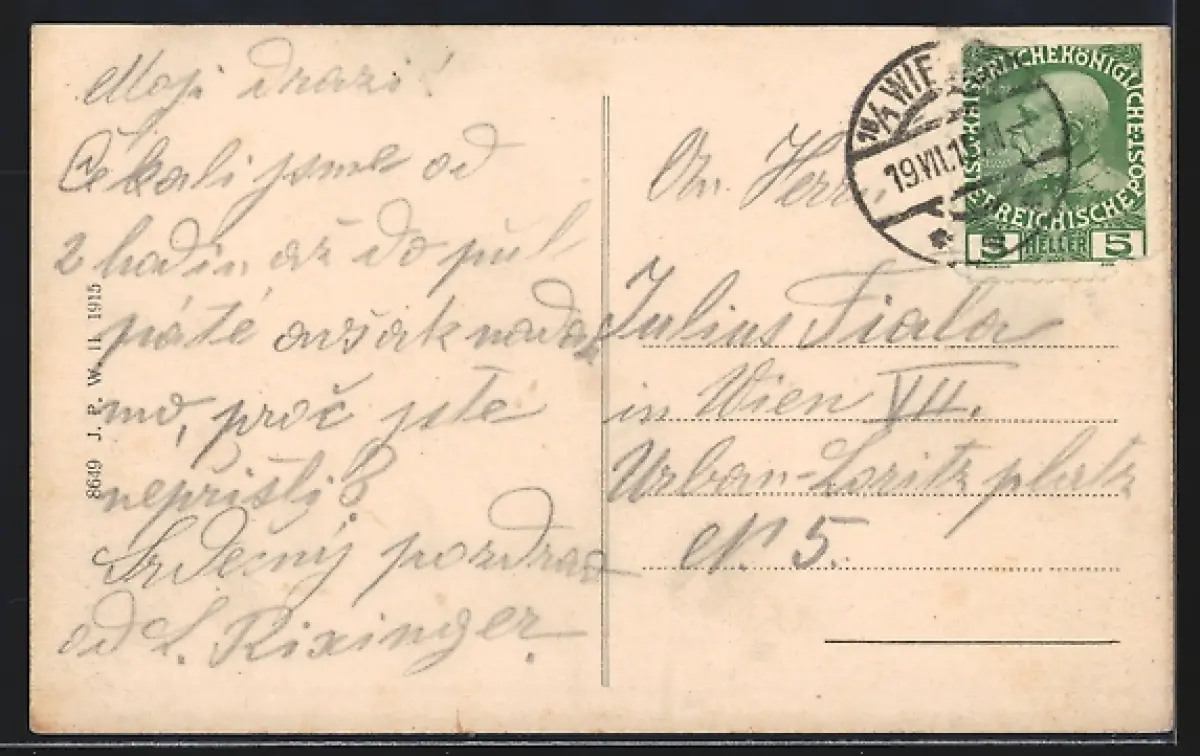 Moji drazí!
Čekali jsme od
2 hodin až do půl
páté avšak nada
rmo, proč jste
nepřišli?
Srdečný pozdrav
od L. Rixinger.
8649 J. P. W. II. 1915
An Herrn
Julius Fiala
in Wien VII.
Urban-Loritz platz
N. 5.
WIE
19 VII. 15
KAISERLICHE KÖNIGLICHE ÖSTERREICHISCHE POST
5 HELLER 5